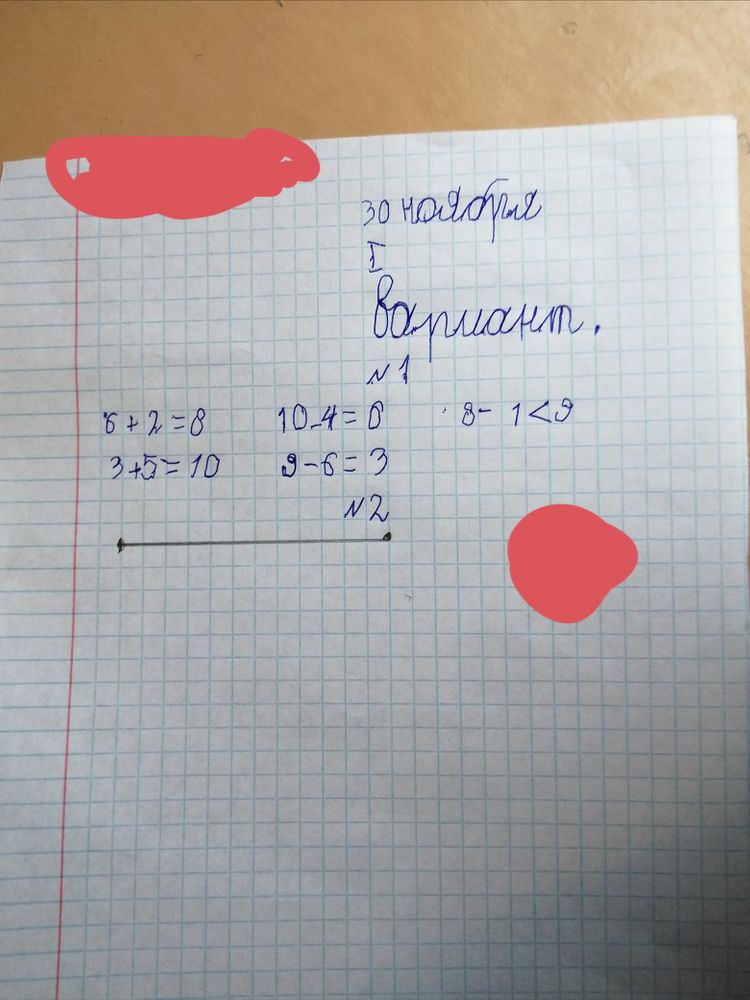 30 ноября
I
Вариант.
№1
6+2=8 10-4=6 8-1<9
3+5=10 9-6=3
№2